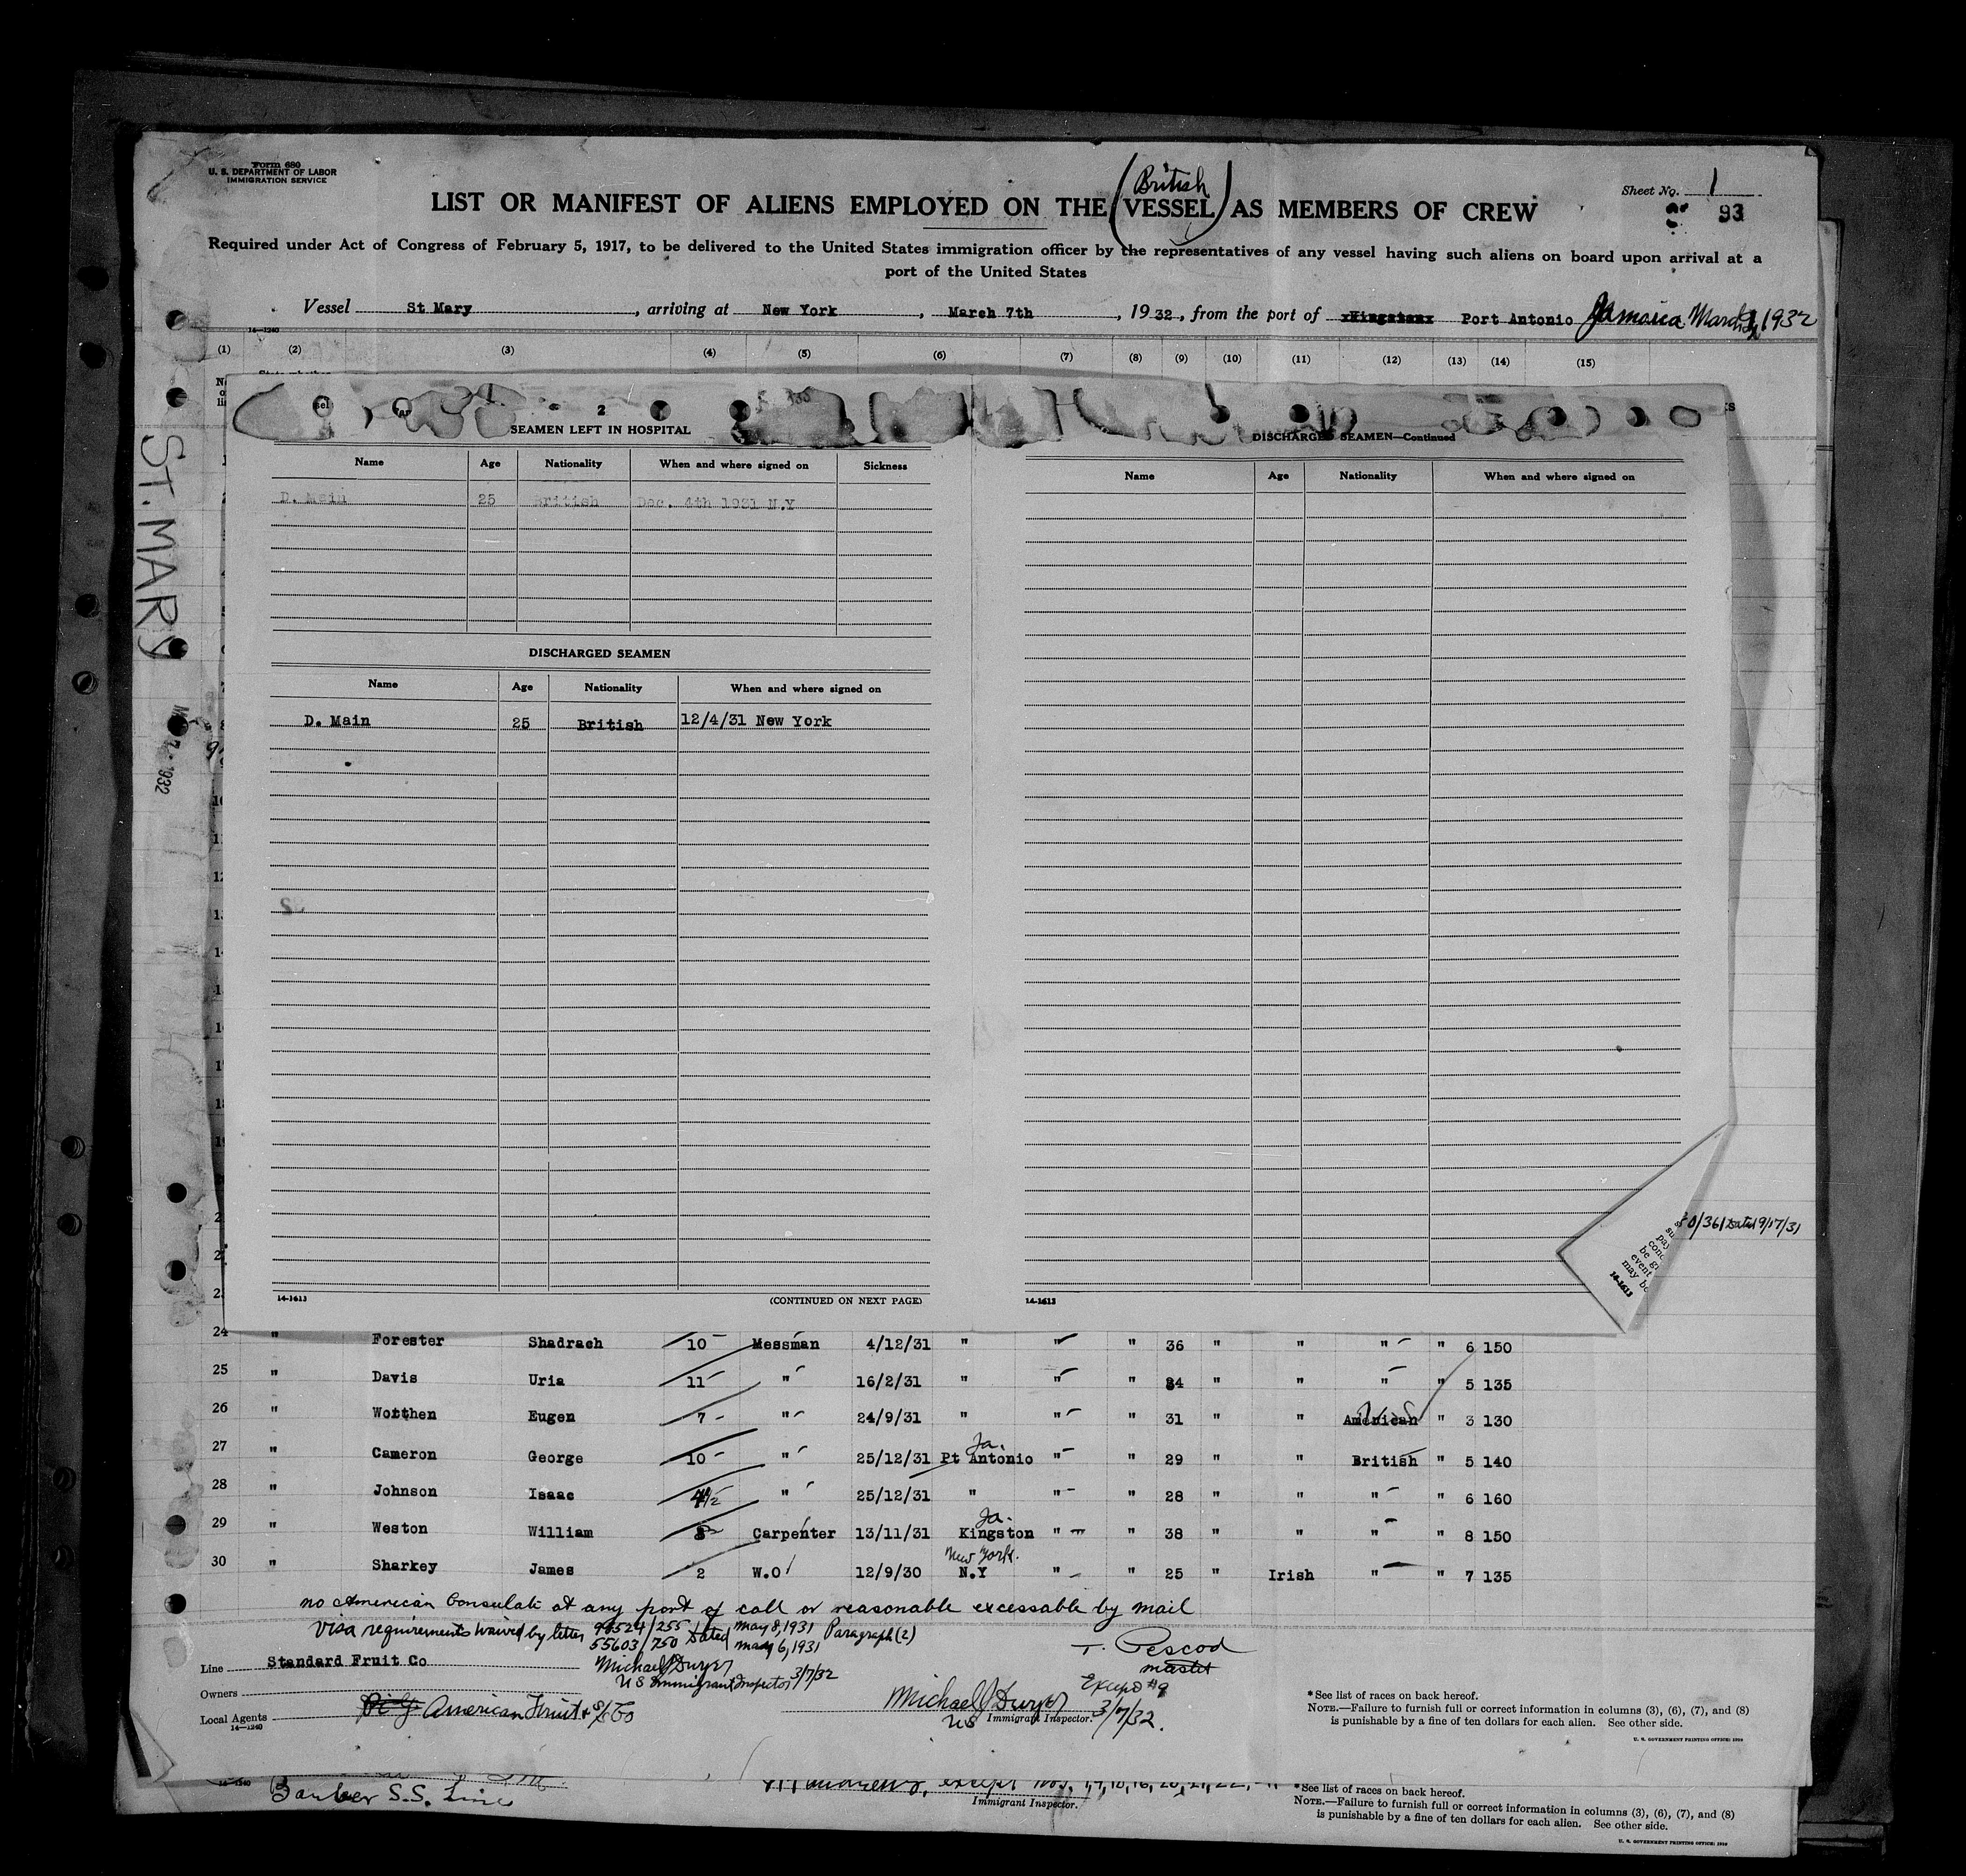 Form 680
U. S. DEPARTMENT OF LABOR
IMMIGRATION SERVICE
Sheet No. 1
93
British
LIST OR MANIFEST OF ALIENS EMPLOYED ON THE (VESSEL) AS MEMBERS OF CREW
Required under Act of Congress of February 5, 1917, to be delivered to the United States immigration officer by the representatives of any vessel having such aliens on board upon arrival at a
port of the United States
Vessel St Mary, arriving at New York, March 7th, 1932, from the port of Kingston Port Antonio Jamaica March 1932
14—1240
(1) (2) (3) (4) (5) (6) (7) (8) (9) (10) (11) (12) (13) (14) (15)
ST. MARY
1932
2
SEAMEN LEFT IN HOSPITAL
Name Age Nationality When and where signed on Sickness
D. Main 25 British Dec. 4th 1931 N.Y
DISCHARGED SEAMEN
Name Age Nationality When and where signed on
D. Main 25 British 12/4/31 New York
14-1613 (CONTINUED ON NEXT PAGE)
DISCHARGED SEAMEN—Continued
Name Age Nationality When and where signed on
14-1613
0/361 Dated 9/17/31
14-1613
24 " Forester Shadrach 10 Messman 4/12/31 " " " 36 " " " " 6 150
25 " Davis Uria 11 " 16/2/31 " " " 34 " " " " 5 135
26 " Worthen Eugen 7 " 24/9/31 " " " 31 " " American " 3 130
27 " Cameron George 10 " 25/12/31 Pt Antonio Ja. " " 29 " " British " 5 140
28 " Johnson Isaac 4½ " 25/12/31 " " " 28 " " " " 6 160
29 " Weston William 8 Carpenter 13/11/31 Kingston Ja. " " 38 " " " " 8 150
30 " Sharkey James 2 W.O 12/9/30 N.Y New York. " " 25 " Irish " " 7 135
no American Consulate at any port of call or reasonable excessable by mail
Visa requirements waived by letter 98524/255 May 8, 1931 Paragraph (2)
55603/750 Dated May 6, 1931
T. Pescod
Master
Michael J Dwyer
US Immigrant Inspector 3/7/32
Except #9
Line Standard Fruit Co
Owners
Local Agents American Fruit & S/S Co
14—1240
Michael J Dwyer
US Immigrant Inspector. 3/7/32.
* See list of races on back hereof.
NOTE.—Failure to furnish full or correct information in columns (3), (6), (7), and (8)
is punishable by a fine of ten dollars for each alien. See other side.
U. S. GOVERNMENT PRINTING OFFICE: 1930
14—1240
Barber S.S. Line
Immigrant Inspector.
* See list of races on back hereof.
NOTE.—Failure to furnish full or correct information in columns (3), (6), (7), and (8)
is punishable by a fine of ten dollars for each alien. See other side.
U. S. GOVERNMENT PRINTING OFFICE: 1930